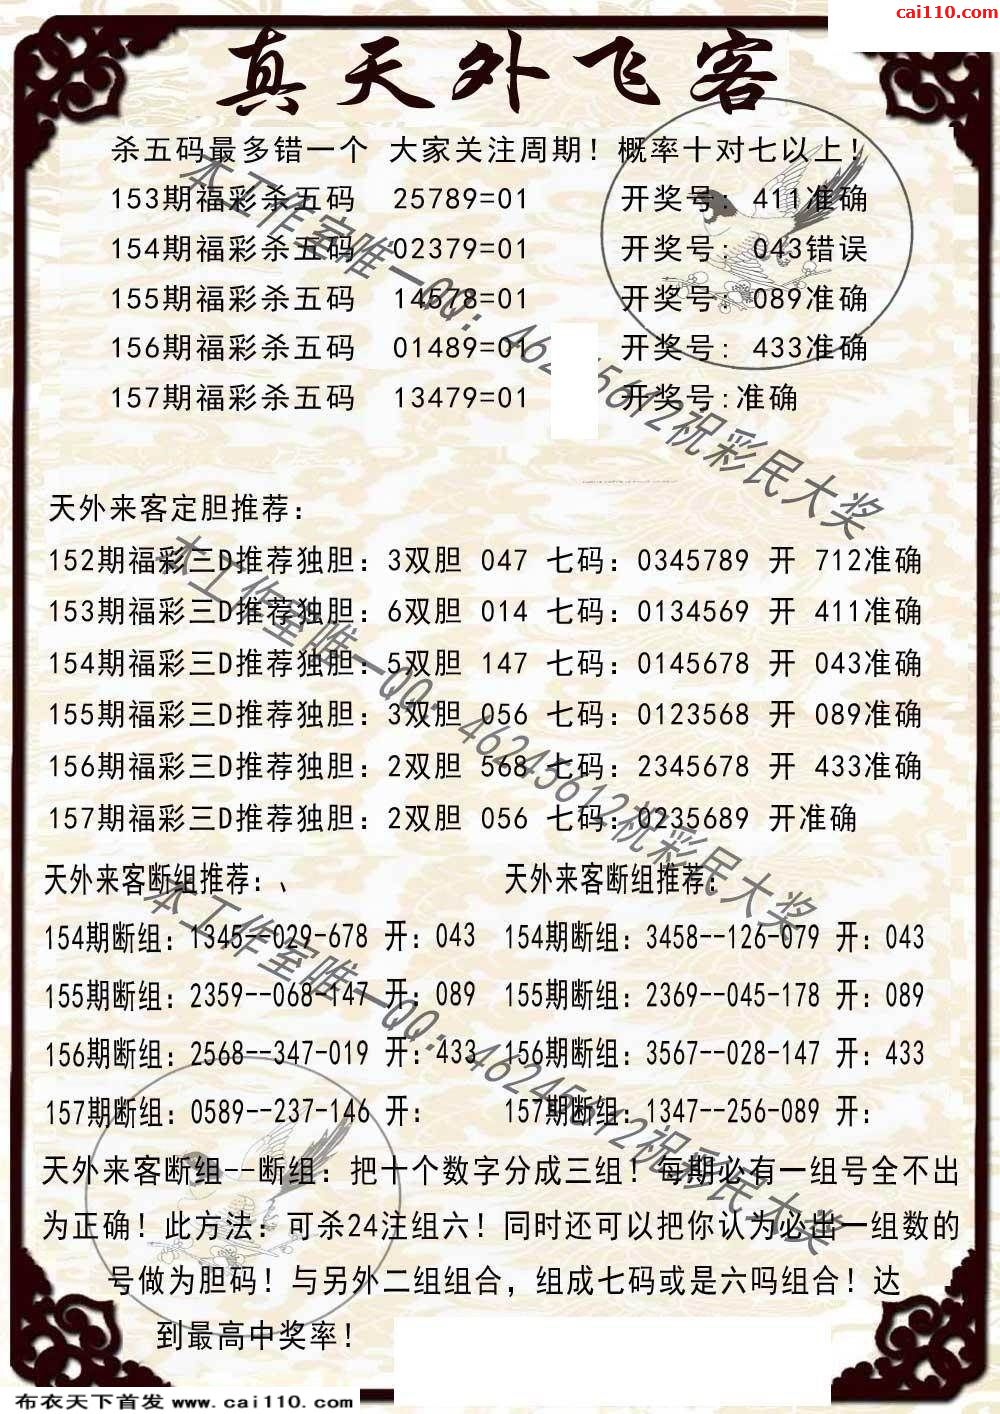 cai110.com
真天外飞客
杀五码最多错一个 大家关注周期！概率十对七以上！
153期福彩杀五码 25789=01 开奖号: 411准确
154期福彩杀五码 02379=01 开奖号: 043错误
155期福彩杀五码 14578=01 开奖号: 089准确
156期福彩杀五码 01489=01 开奖号: 433准确
157期福彩杀五码 13479=01 开奖号:准确
本工作室唯一QQ: 46245612祝彩民大奖
天外来客定胆推荐:
152期福彩三D推荐独胆: 3双胆 047 七码: 0345789 开 712准确
153期福彩三D推荐独胆: 6双胆 014 七码: 0134569 开 411准确
154期福彩三D推荐独胆: 5双胆 147 七码: 0145678 开 043准确
155期福彩三D推荐独胆: 3双胆 056 七码: 0123568 开 089准确
156期福彩三D推荐独胆: 2双胆 568 七码: 2345678 开 433准确
157期福彩三D推荐独胆: 2双胆 056 七码: 0235689 开准确
本工作室唯一QQ: 46245612祝彩民大奖
天外来客断组推荐:、 天外来客断组推荐:
154期断组: 1345--029-678 开: 043 154期断组: 3458--126-079 开: 043
155期断组: 2359--068-147 开: 089 155期断组: 2369--045-178 开: 089
156期断组: 2568--347-019 开: 433 156期断组: 3567--028-147 开: 433
157期断组: 0589--237-146 开: 157期断组: 1347--256-089 开:
本工作室唯一QQ: 46245612祝彩民大奖
天外来客断组--断组: 把十个数字分成三组！每期必有一组号全不出
为正确！此方法: 可杀24注组六！同时还可以把你认为必出一组数的
号做为胆码！与另外二组组合，组成七码或是六吗组合！达
到最高中奖率！
布衣天下首发 www.cai110.com